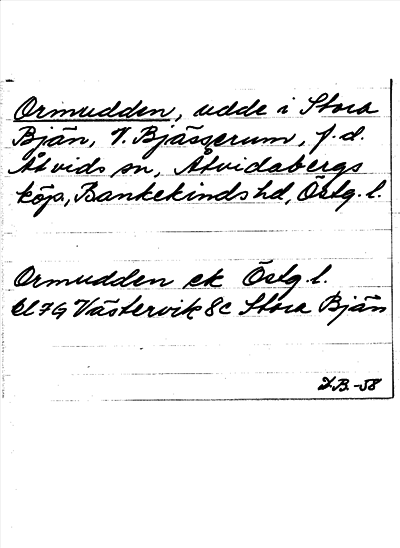 Ormudden, udde i Stora
Bjän, V. Bjässerum, f. d.
Åtvids sn, Åtvidabergs
köp, Bankekinds hd, Östg. l.
Ormudden ek Östg. l.
bl 7G Västervik 8c Stora Bjän
I.B.-58